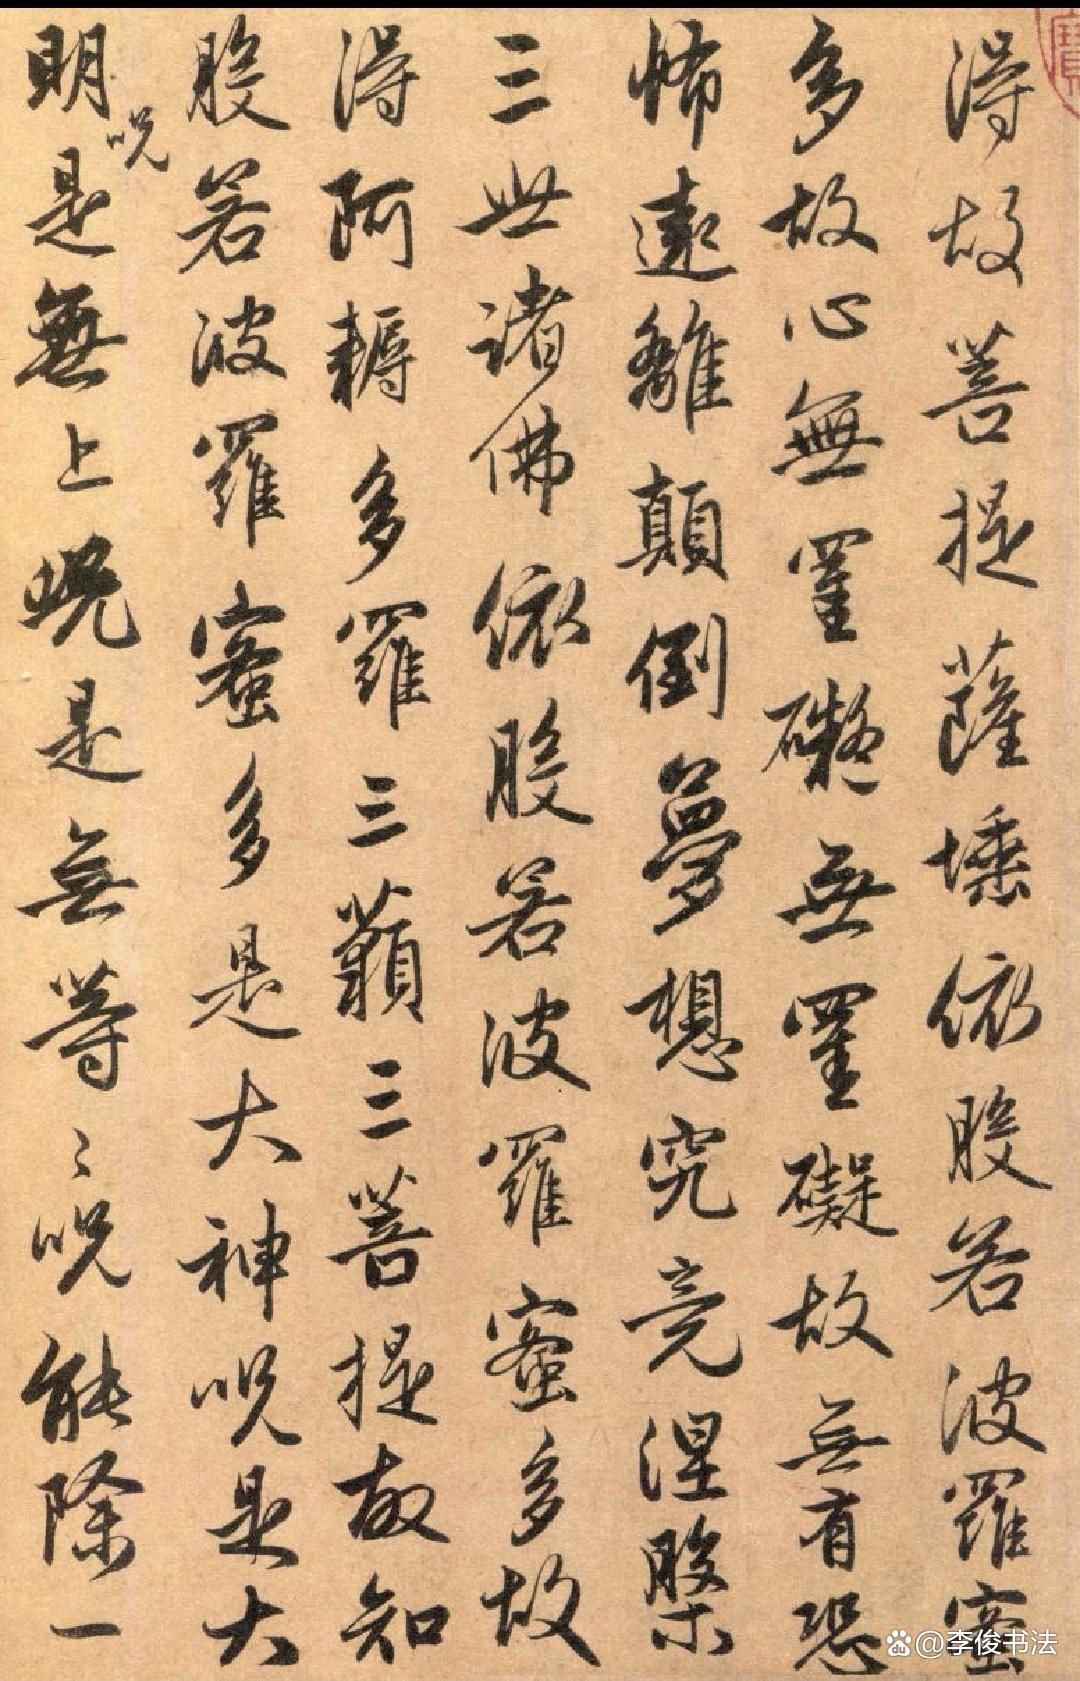 得故菩提薩埵依般若波羅蜜
多故心無罣礙無罣礙故無有恐
怖遠離顛倒夢想究竟涅槃
三世諸佛依般若波羅蜜多故
得阿耨多羅三藐三菩提故知
般若波羅蜜多是大神呪是大
明呪是無上呪是無等〻呪能除一
@李俊书法